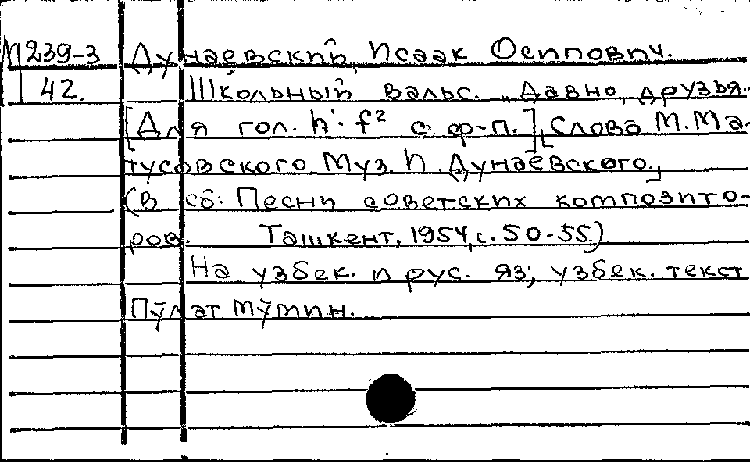 М239-3 Дунаевский, Исаак Осипович.
42. Школьный вальс. „Давно, друзья..
[Для гол. h'-f² с ф-п.] [Слова М. Ма-
тусовского. Муз. И. Дунаевского.]
(В сб: Песни советских композито-
ров. Ташкент, 1954, с. 50-55)
На узбек. и рус. яз; узбек. текст
Пўлат Мўмин.